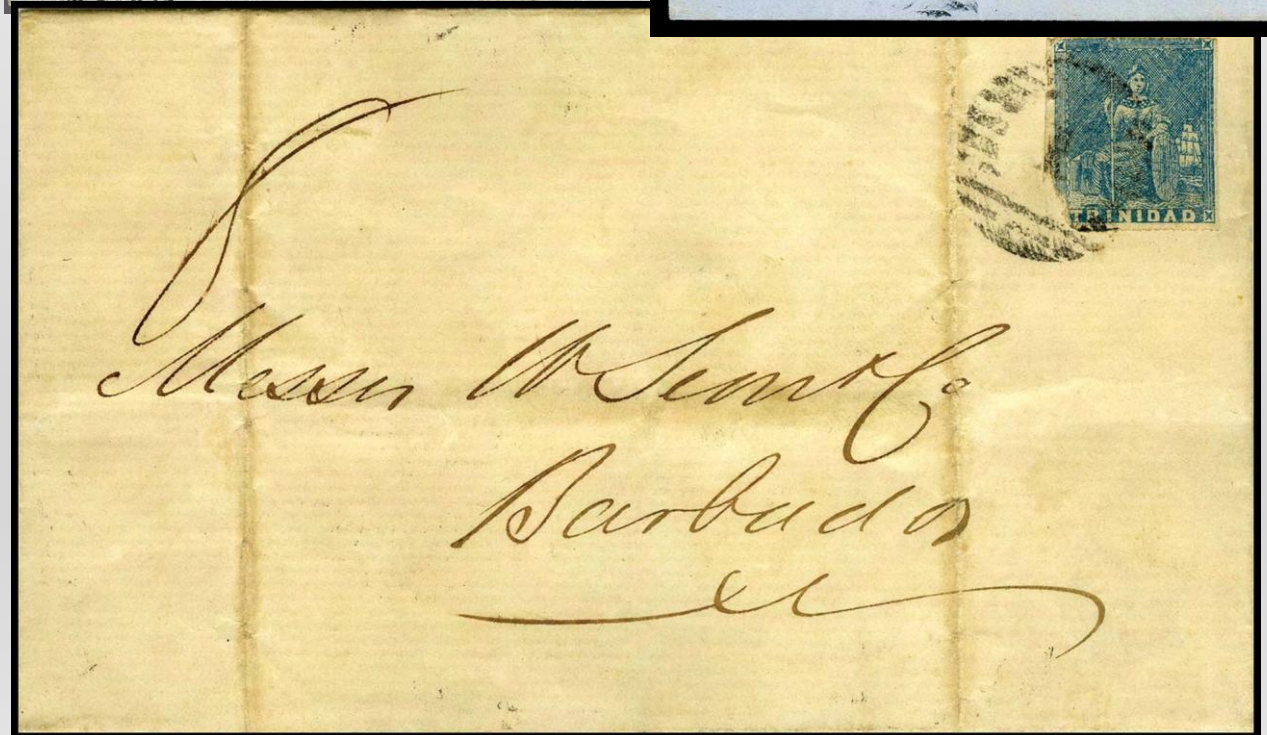 TRINIDAD
Messrs W & Co
Barbados